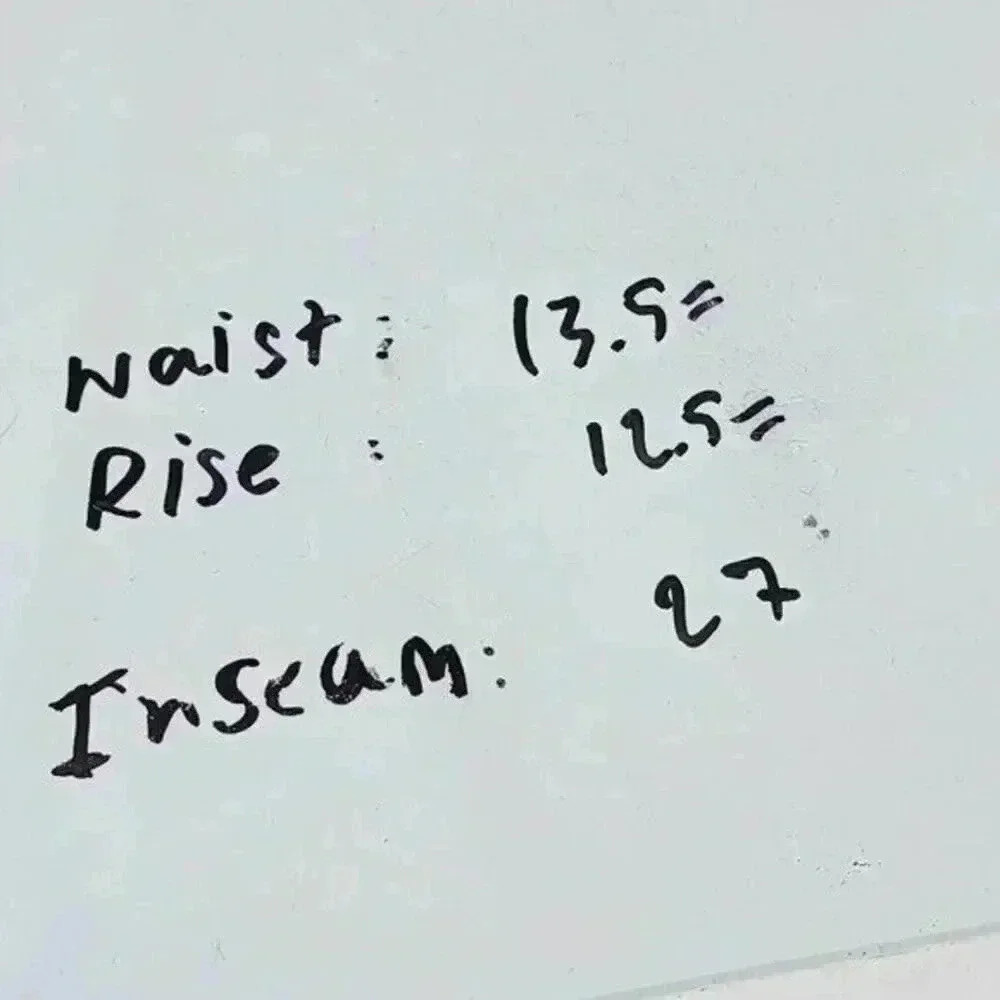 Waist: 13.5"
Rise : 12.5"
Inseam: 27